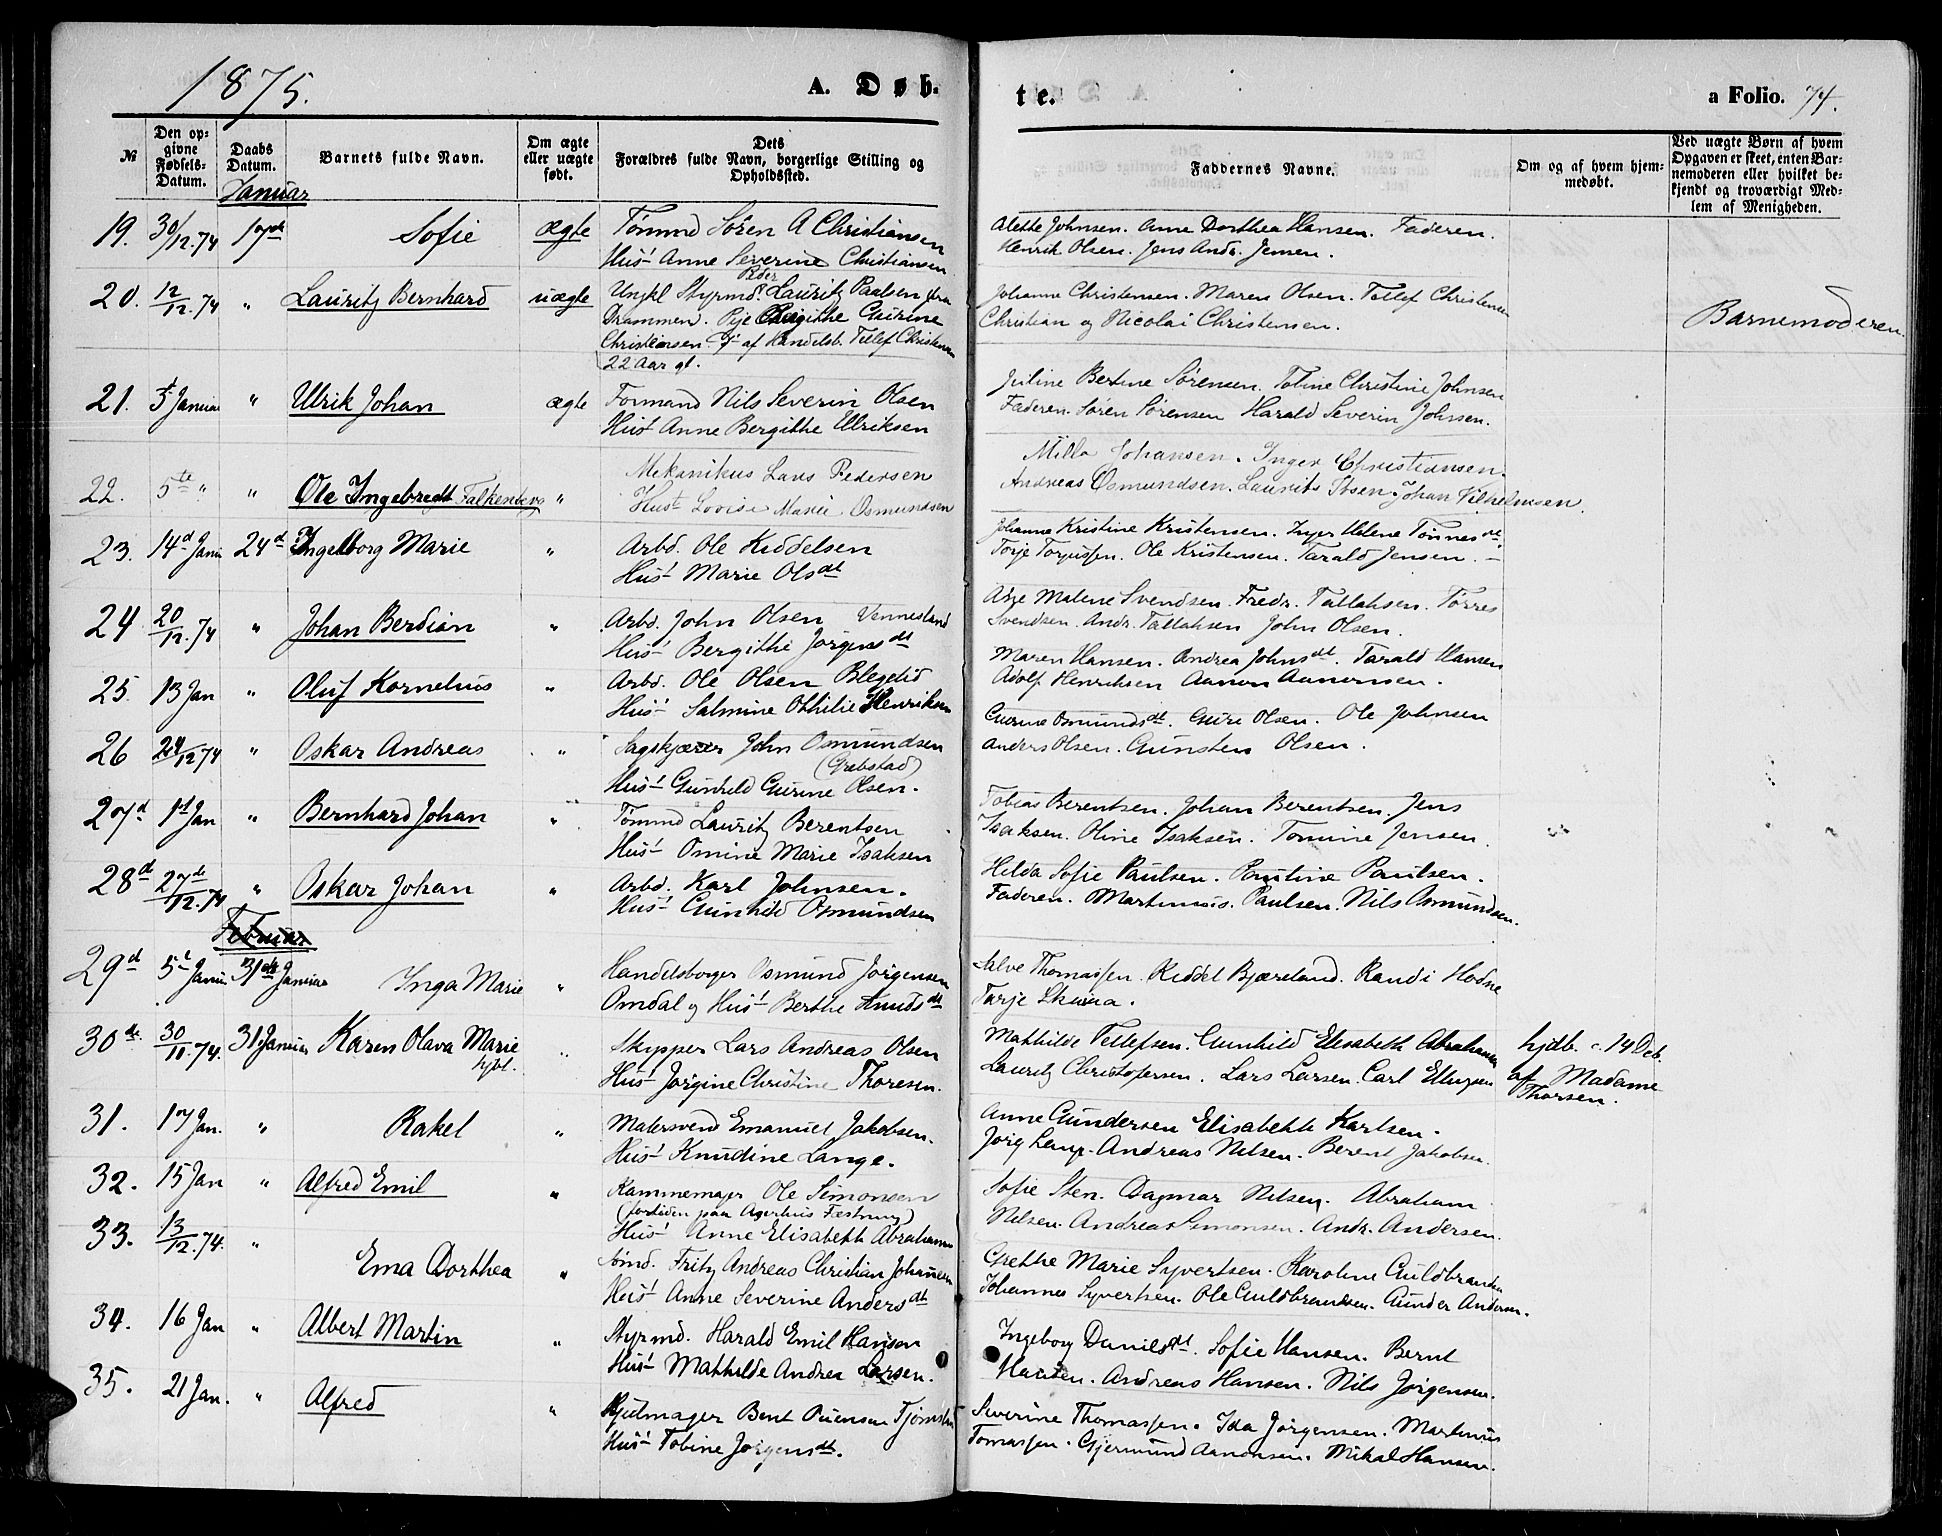 1875.
A. Døb-
te.
a Folio. 74.
№
Den opgivne Fødsels-Datum.
Daabs Datum.
Barnets fulde Navn.
Om ægte eller uægte født.
Dets Forældres fulde Navn, borgerlige Stilling og Opholdssted.
Faddernes Navne.
Om og af hvem hjemmedøbt.
Ved uægte Børn af hvem Opgaven er skeet, enten Barnemoderen eller hvilket bekjendt og troværdigt Medlem af Menigheden.
Januar
19. 30/12.74 17de Sofie ægte Tømmd Søren A Christiansen
Hust Anne Severine Christiansen
Alette Johnsen. Anne Dorthea Hansen. Faderen.
Henrik Olsen. Jens Andr. Jensen.
20. 12/12.74 " Lauritz Bernhard uægte Ungkl Styrmd. Peder Lauritz Paulsen fra
Drammen. Pige Birgithe Gurine
Christensen D. af Handelsb. Tellef Christensen
22 Aar gl.
Johanne Christensen. Maren Olsen. Tellef Christensen
Christian og Nicolai Christensen.
Barnemoderen
21. 5t Januar " Ulrik Johan ægte Formand Nils Severin Olsen
Hust Anne Bergithe Ulriksen
Juline Bertine Sørensen. Tobine Christine Johnsen
Faderen. Søren Sørensen Harald Severin Johnsen.
22. 5te " " Ole Ingebregt Falkenberg " Mekanikus Lars Pedersen
Hust Lovise Marie Osmundsen
Milla Johansen. Inger Christiansen.
Andreas Osmundsen. Laurits Ibsen. Johan Vilhelmsen.
23. 14d Janu 24d Ingeborg Marie " Arbd. Ole Kiddelsen
Hust Marie Olsdt
Johanne Kristine Kristensen. Inger Helene Tønnesdt.
Torje Torjussen. Ole Kristensen. Tarald Jensen. -
24 20/12.74 " Johan Berdian " Arbd. John Olsen Vennesland
Hust Bergithe Jørgensdt
Asje Malene Svendsen. Fredr. Tallaksen. Tørres
Svendsen. Andr. Tallaksen John Olsen.
25. 13 Jan " Oluf Kornelius " Arbd. Ole Olsen Blegelid
Hust Salmine Othilie Henriksen
Maren Hansen. Andrea Johnsdt. Tarald Hansen
Adolf Henriksen Aanon Aanonsen.
26 24/12 74 " Oskar Andreas " Sagskjærer John Osmundsen
(Grebstad)
Hust Gunhild Gurine Olsen.
Gurine Osmundsdt. Guri Olsen. Ole Johnsen
Anders Olsen. Gunsten Olsen.
27d 1st Jan " Bernhard Johan " Tømmd Lauritz Berentsen
Hust Omine Marie Isaksen
Tobias Berentsen. Johan Berentsen. Jens
Isaksen. Oline Isaksen. Tomine Jensen.
28d 27de/12.74 " Oskar Johan " Arbd. Karl Johnsen.
Hust Gunhild Osmundsen
Hilda Sofie Paulsen. Pauline Paulsen.
Faderen. Martinius Paulsen. Nils Osmundsen.
Februar
29d 5t Janu 31de Januar Inga Marie " Handelsborger Osmund Jørgensen
Omdal og Hust Berthe Knudsdt
Salve Thomassen. Kiddel Bjæreland. Randi Hodne
Tarje Skuaa.
30de 30/11.74. 31 Januar Karen Olava Marie
hjbt.
" Skipper Lars Andreas Olsen
Hust Jørgine Christine Thoresen.
Mathilde Tellefsen. Gunhild Elisabeth Abrahamsen
Lauritz Christofersen. Lars Larsen. Carl Ellingsen
hjdb. . 14 Deb.
af Madame
Thorsen.
31. 17 Jan. " Rakel " Malersvend Emanuel Jakobsen.
Hust Knudine Lange.
Anne Gundersen Elisabeth Karlsen.
Jørg Lange. Andreas Nilsen. Berent Jakobsen.
32. 15 Jan " Alfred Emil " Kammemager Ole Simonsen
(fortiden paa Agerhus Fæstning)
Hust Anne Elisabeth Abrahamsen
Sofie Sten. Dagmar Nilsen. Abraham
Nilsen. Andreas Simonsen. Andr. Andersen.
33. 13/12.74. " Ema Dorthea " Tømd. Fritz Andreas Christian Johansen
Hust Anne Severine Andersdt
Grethe Marie Syvertsen. Karoline Guldbrandsen
Johannes Syvertsen. Ole Guldbrandsen. Gunder Andersen.
34. 16 Jan " Albert Martin " Styrmd. Harald Emil Hansen
Hust Mathilde Andrea Larsen.
Ingeborg Danielsdt. Sofie Hansen. Bernt
Hansen. Andreas Hansen. Nils Jørgensen.
35. 21 Jan. " Alfred " Hjulmager Bent Tjomsland
Hust Tobine Jørgensdt.
Severine Thomassen. Ida Jørgensen. Martinius
Tomassen. Gjermund Aanonsen. Mikal Hansen.